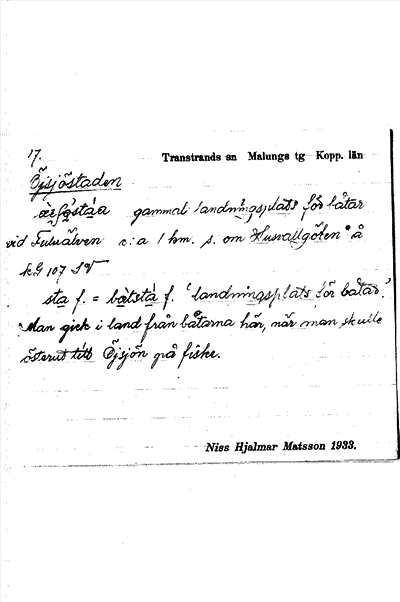 17.
Transtrands sn Malungs tg Kopp. län
Öjsjöstaden
gammal landningsplats för båtar
vid Fuluälven c:a 1 km. s. om Husvallgöten å
kG 107 SV
sta f. = båtstá f. 'landningsplats för båtar.'
Man gick i land från båtarna här, när man skulle
österut till Öjsjön på fiske.
Niss Hjalmar Matsson 1933.